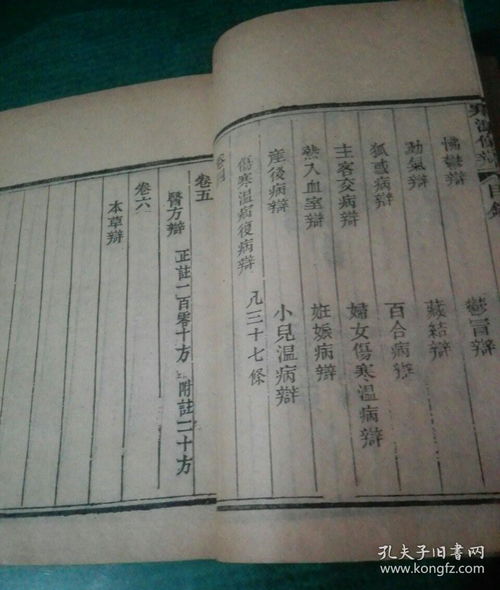 怫鬱辯 鬱冒辯
動氣辯 臟結辯
狐惑病辯 百合病辯
主客交病辯 婦女傷寒溫病辯
熱入血室辯 妊娠病辯
產後病辯 小兒溫病辯
傷寒溫病復病辯 凡三十七條
卷五
醫方辯 正註一百零十方 附註二十方
卷六
本草辯
孔夫子旧书网
www.kongfz.com